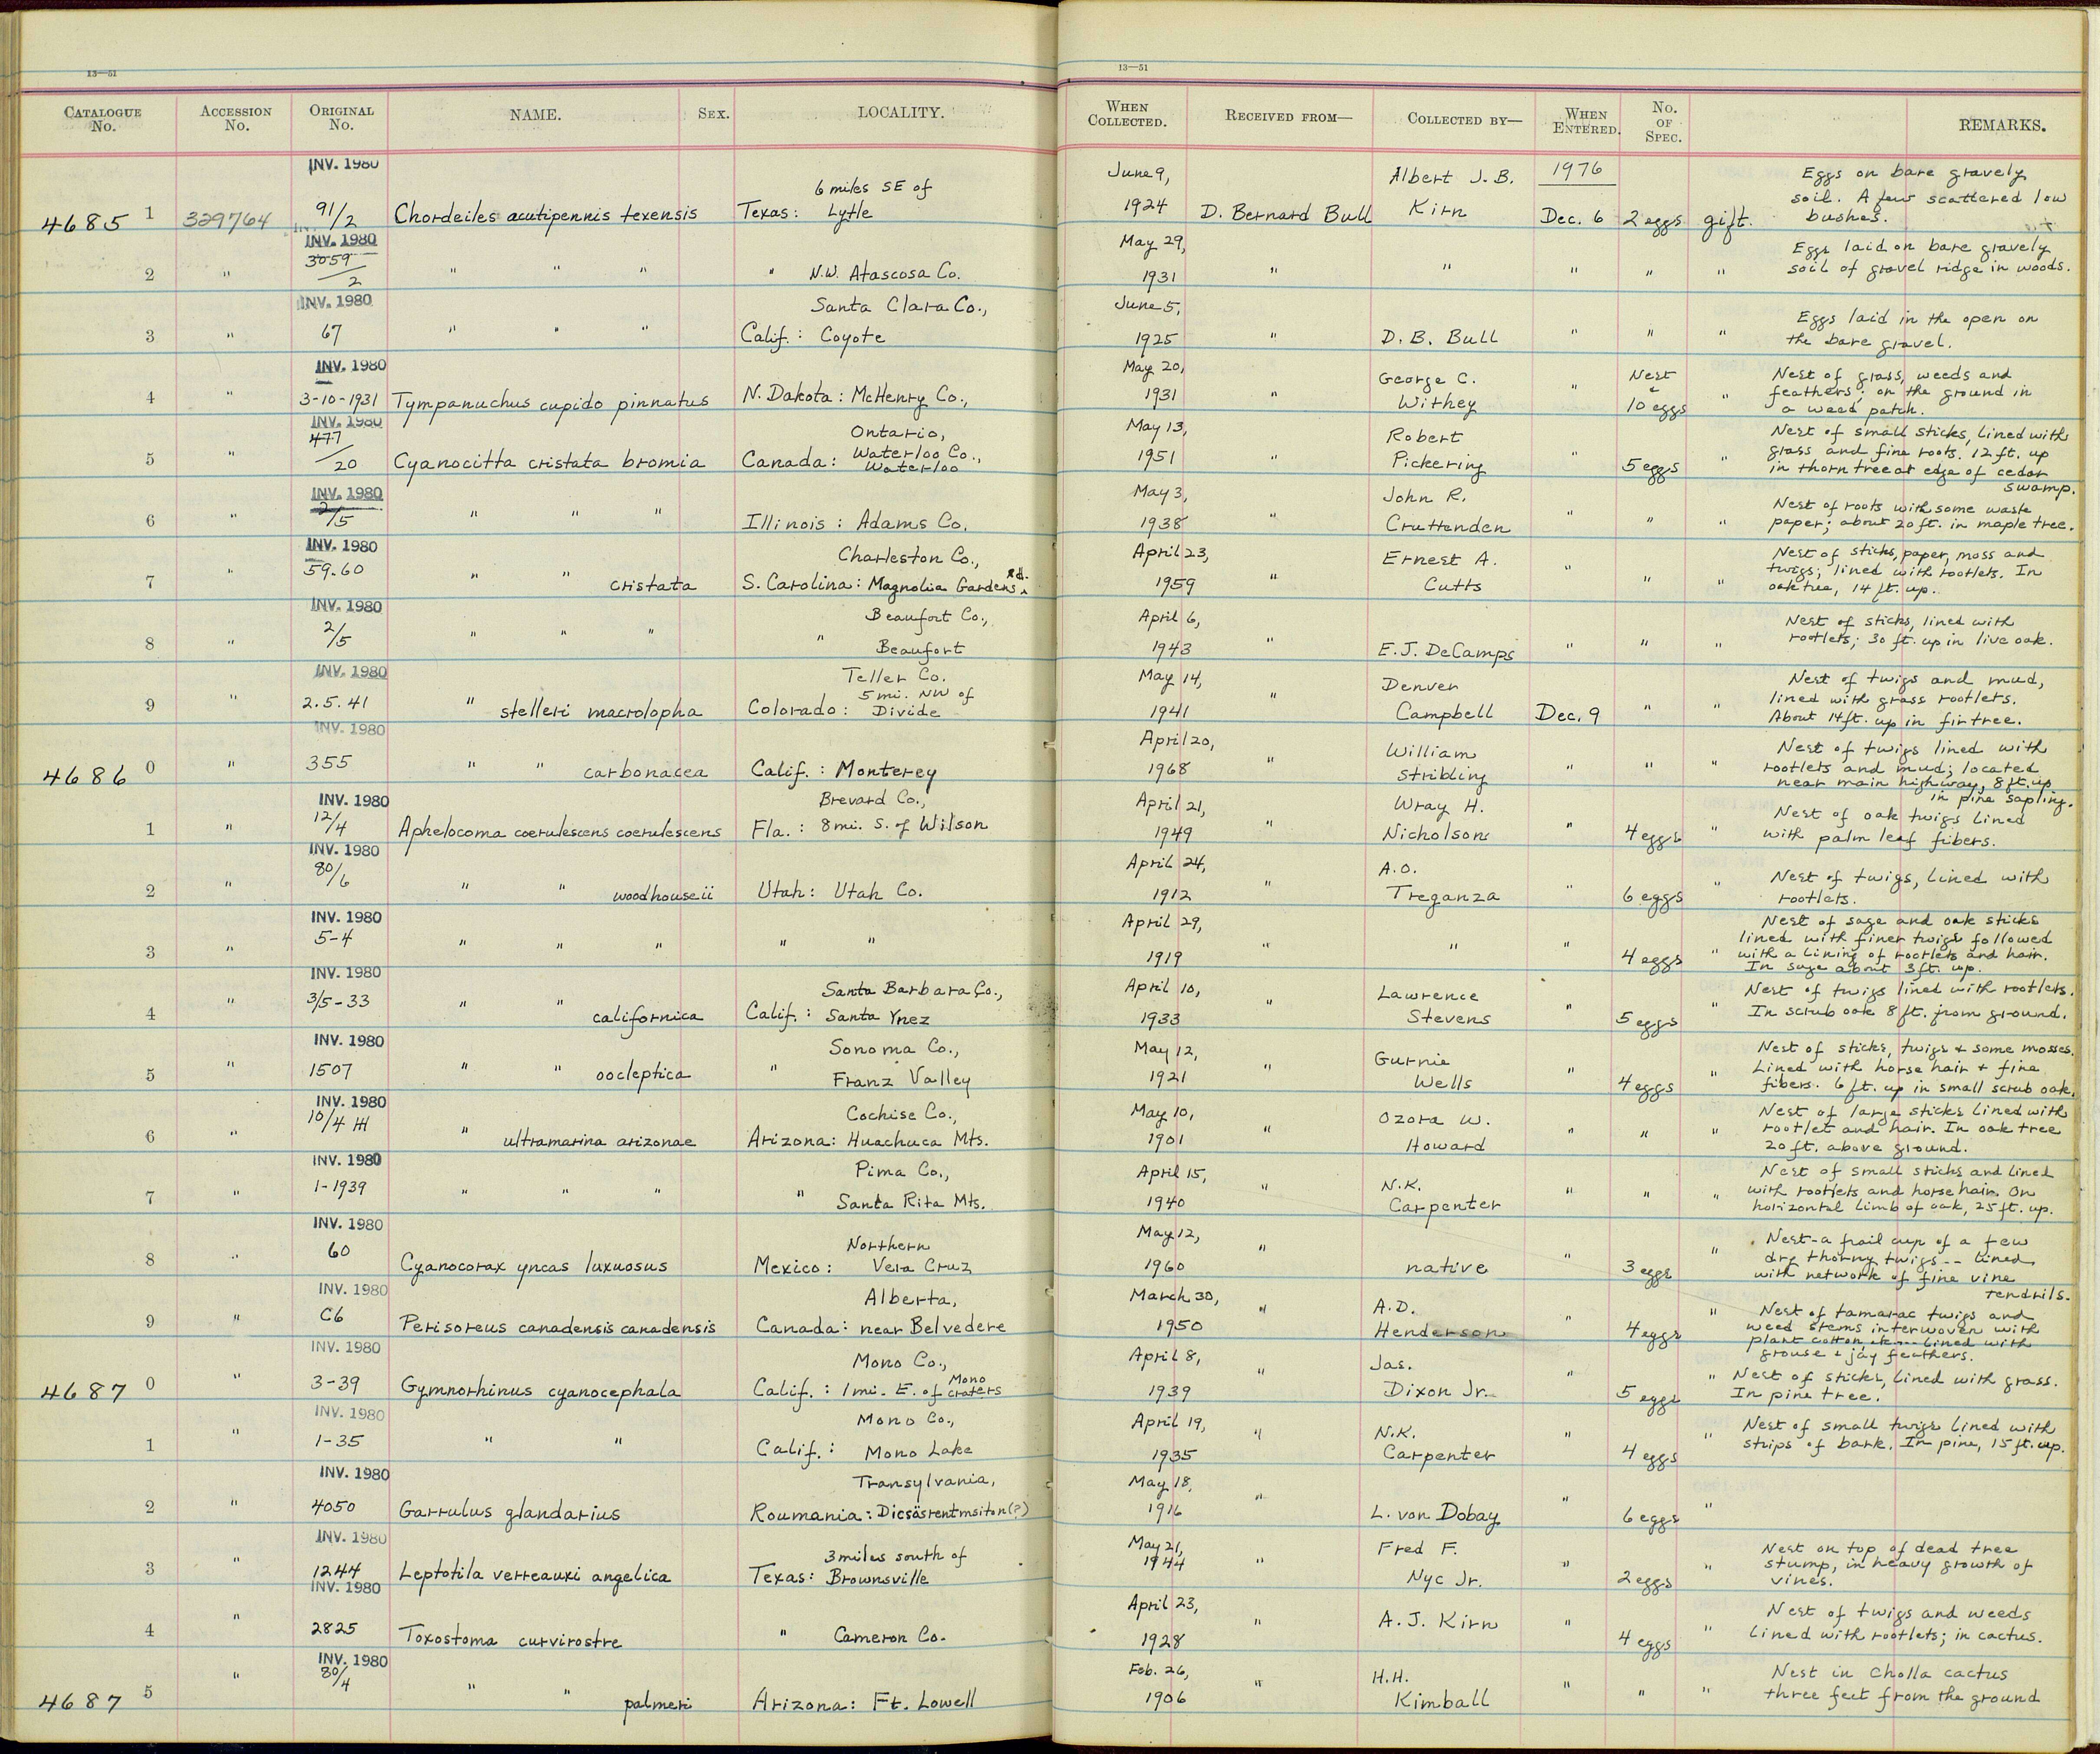 13—51
CATALOGUE No. ACCESSION No. ORIGINAL No. NAME. SEX. LOCALITY.
INV. 1980
6 miles SE of
4685 1 329764 91/2 Chordeiles acutipennis texensis Texas: Lytle
INV. 1980
3059
2 " /2 " " " " N.W. Atascosa Co.
INV. 1980 Santa Clara Co.,
3 " 67 " " " Calif.: Coyote
INV. 1980
4 " 3-10-1931 Tympanuchus cupido pinnatus N. Dakota: McHenry Co.,
INV. 1980 Ontario,
477 Waterloo Co.,
5 " /20 Cyanocitta cristata bromia Canada: Waterloo
INV. 1980
6 " 2/5 " " " Illinois: Adams Co.
INV. 1980 Charleston Co.,
7 " 59.60 " " cristata S. Carolina: Magnolia Gardens Rd.
INV. 1980 Beaufort Co.,
8 " 2/5 " " " " Beaufort
INV. 1980 Teller Co.
5 mi. NW of
9 " 2.5.41 " stelleri macrolopha Colorado: Divide
INV. 1980
4686 0 " 355 " " carbonacea Calif.: Monterey
INV. 1980 Brevard Co.,
1 " 12/4 Aphelocoma coerulescens coerulescens Fla.: 8 mi. S. of Wilson
INV. 1980
2 " 80/6 " " woodhouseii Utah: Utah Co.
INV. 1980
3 " 5-4 " " " " "
INV. 1980 Santa Barbara Co.,
4 " 3/5-33 " " californica Calif.: Santa Ynez
INV. 1980 Sonoma Co.,
5 " 1507 " " oocleptica " Franz Valley
INV. 1980 Cochise Co.,
6 " 10/4 HH " ultramarina arizonae Arizona: Huachuca Mts.
INV. 1980 Pima Co.,
7 " 1-1939 " " " " Santa Rita Mts.
INV. 1980 Northern
8 " 60 Cyanocorax yncas luxuosus Mexico: Vera Cruz
INV. 1980 Alberta,
9 " C6 Perisoreus canadensis canadensis Canada: near Belvedere
INV. 1980 Mono Co.,
4687 0 " 3-39 Gymnorhinus cyanocephala Calif.: 1 mi. E. of Mono craters
INV. 1980 Mono Co.,
1 " 1-35 " " Calif.: Mono Lake
INV. 1980 Transylvania,
2 " 4050 Garrulus glandarius Roumania: Dicsösrentmsiton(?)
INV. 1980 3 miles south of
3 " 1244 Leptotila verreauxi angelica Texas: Brownsville
INV. 1980
4 " 2825 Toxostoma curvirostre " Cameron Co.
INV. 1980
4687 5 " 80/4 " " palmeri Arizona: Ft. Lowell
13—51
WHEN COLLECTED. RECEIVED FROM— COLLECTED BY— WHEN ENTERED. No. OF SPEC. REMARKS.
June 9, Albert J. B. 1976 Eggs on bare gravely
soil. A few scattered low
1924 D. Bernard Bull Kirn Dec. 6 2 eggs gift. bushes.
May 29, Eggs laid on bare gravely
1931 " " " " " soil of gravel ridge in woods.
June 5, Eggs laid in the open on
1925 " D. B. Bull " " " the bare gravel.
May 20, George C. Nest Nest of grass, weeds and
& feathers; on the ground in
1931 " Withey " 10 eggs " a weed patch.
May 13, Robert Nest of small sticks, lined with
grass and fine roots. 12 ft. up
1951 " Pickering " 5 eggs " in thorn tree at edge of cedar
swamp.
May 3, John R. Nest of roots with some waste
1938 " Cruttenden " " " paper; about 20 ft. in maple tree.
April 23, Ernest A. Nest of sticks, paper, moss and
twigs; lined with rootlets. In
1959 " Cutts " " " oak tree, 14 ft. up.
April 6, Nest of sticks, lined with
1943 " E. J. DeCamps " " " rootlets; 30 ft. up in live oak.
May 14, Denver Nest of twigs and mud,
lined with grass rootlets.
1941 " Campbell Dec. 9 " " About 14 ft. up in fir tree.
April 20, William Nest of twigs lined with
1968 " Stribling " " " rootlets and mud; located
near main highway, 8 ft. up
in pine sapling.
April 21, Wray H. Nest of oak twigs lined
1949 " Nicholson " 4 eggs " with palm leaf fibers.
April 24, A.O. Nest of twigs, lined with
1912 " Treganza " 6 eggs " rootlets.
April 29, Nest of sage and oak sticks
lined with finer twigs followed
1919 " " " 4 eggs " with a lining of rootlets and hair.
In sage about 3 ft. up.
April 10, Lawrence Nest of twigs lined with rootlets.
1933 " Stevens " 5 eggs " In scrub oak 8 ft. from ground.
May 12, Gurnie Nest of sticks, twigs & some mosses.
Lined with horse hair & fine
1921 " Wells " 4 eggs " fibers. 6 ft. up in small scrub oak.
May 10, Ozora W. Nest of large sticks lined with
rootlet and hair. In oak tree
1901 " Howard " " " 20 ft. above ground.
April 15, N.K. Nest of small sticks and lined
with rootlets and horse hair. On
1940 " Carpenter " " " horizontal limb of oak, 25 ft. up.
May 12, Nest-a frail cup of a few
dry thorny twigs -- lined
1960 " native " 3 eggs " with network of fine vine
tendrils.
March 30, A.D. Nest of tamarac twigs and
weed stems interwoven with
1950 " Henderson " 4 eggs " plant cotton lined with
grouse & jay feathers.
April 8, Jas. Nest of sticks, lined with grass.
1939 " Dixon Jr. " 5 eggs " In pine tree.
April 19, N.K. Nest of small twigs lined with
1935 " Carpenter " 4 eggs " strips of bark. In pine, 15 ft. up.
May 18,
1916 " L. von Dobay " 6 eggs "
May 21, Fred F. Nest on top of dead tree
1944 " Nyc Jr. " 2 eggs " stump, in heavy growth of
vines.
April 23, Nest of twigs and weeds
1928 " A. J. Kirn " 4 eggs " lined with rootlets; in cactus.
Feb. 26, H.H. Nest in Cholla cactus
1906 " Kimball " " " three feet from the ground